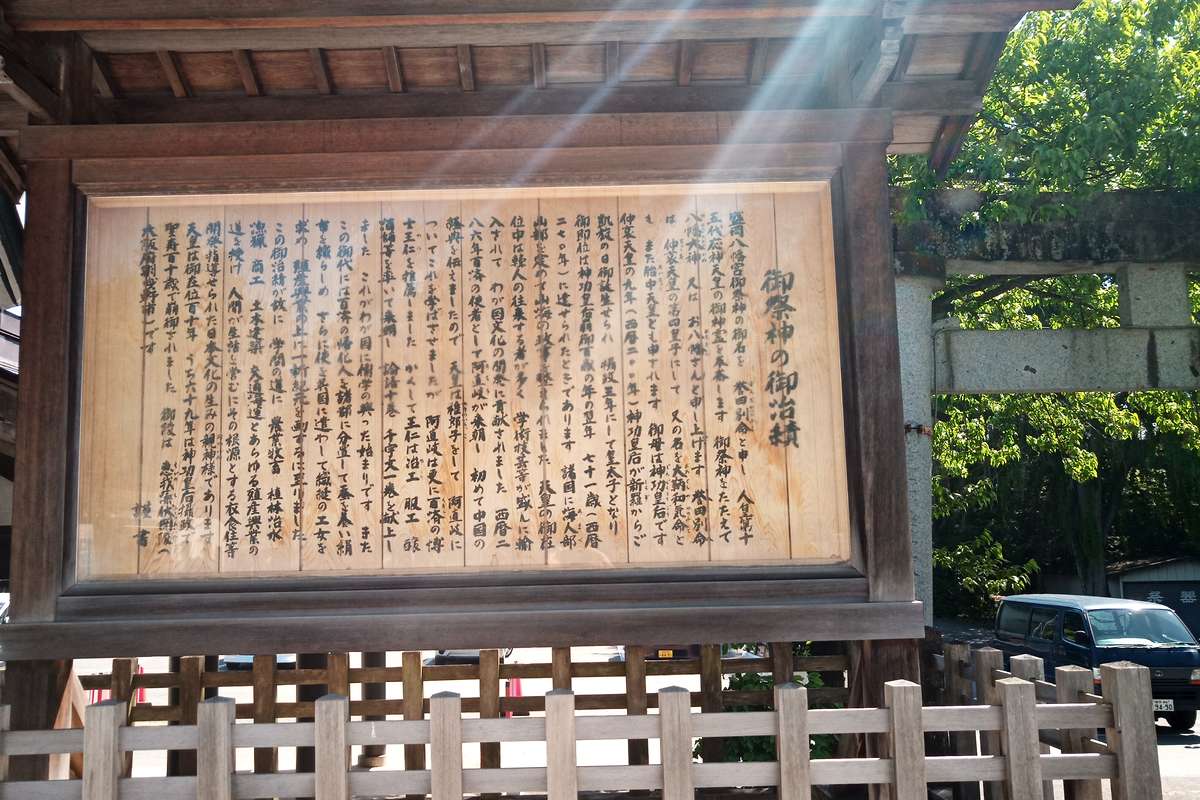 御祭神の御治績
盛岡八幡宮御祭神の御名を 誉田別命と申し 人皇第十
五代応神天皇の御神霊を奉斎します 御祭神をたたえて
八幡大神 又は お八幡さんと申し上げます 誉田別命
は 仲哀天皇の第四皇子にして 又の名を大鞆和気命と
も また胎中天皇とも申されます 御母は神功皇后です
仲哀天皇の九年(西暦二〇〇年)神功皇后が新羅からご
凱旋の日御誕生せられ 摂政三年にして皇太子となり
御即位は神功皇后崩御百歳の年の翌年 七十一歳(西暦
二七〇年)に達せられたときであります 諸国に海人部
山部を定めて山海の政事を 天皇の御在
位中は韓人の往来する者が多く 学術技芸等が盛んに輸
入されて わが国文化の開発に貢献されました 西暦二
八六年百済の使者として阿直岐が来朝し 初めて中国の
経典を伝えましたので 天皇は稚郎子をして 阿直岐に
ついてこれを学ばさせましたが 阿直岐は更に百済の博
士王仁を推薦しました かくして王仁は冶工 服工 醸
酒師等を率いて来朝し 論語十巻 千字文一巻を献上し
ました これがわが国に儒学の興った始まりです また
この御代には百済の帰化人を諸郡に分置して蚕を養い絹
布を織らしめ さらに使を呉国に遣わして織縫の工女を
求め 殖産興業の上に一新紀元を画するに至りました
この御治績が後に 学問の道に 農業牧畜 植林治水
漁猟 商工 土木建築 交通海運とあらゆる殖産興業の
道を授け 人間が生活を営むにその根源とする衣食住等
開発指導せられた日本文化の生みの親神様であります
天皇は御在位百十年 うち六十九年は神功皇后摂政
聖寿百十歳で崩御されました 御陵は 恵我藻伏岡陵(
大阪府羽曳野市)です
謹書
祭器